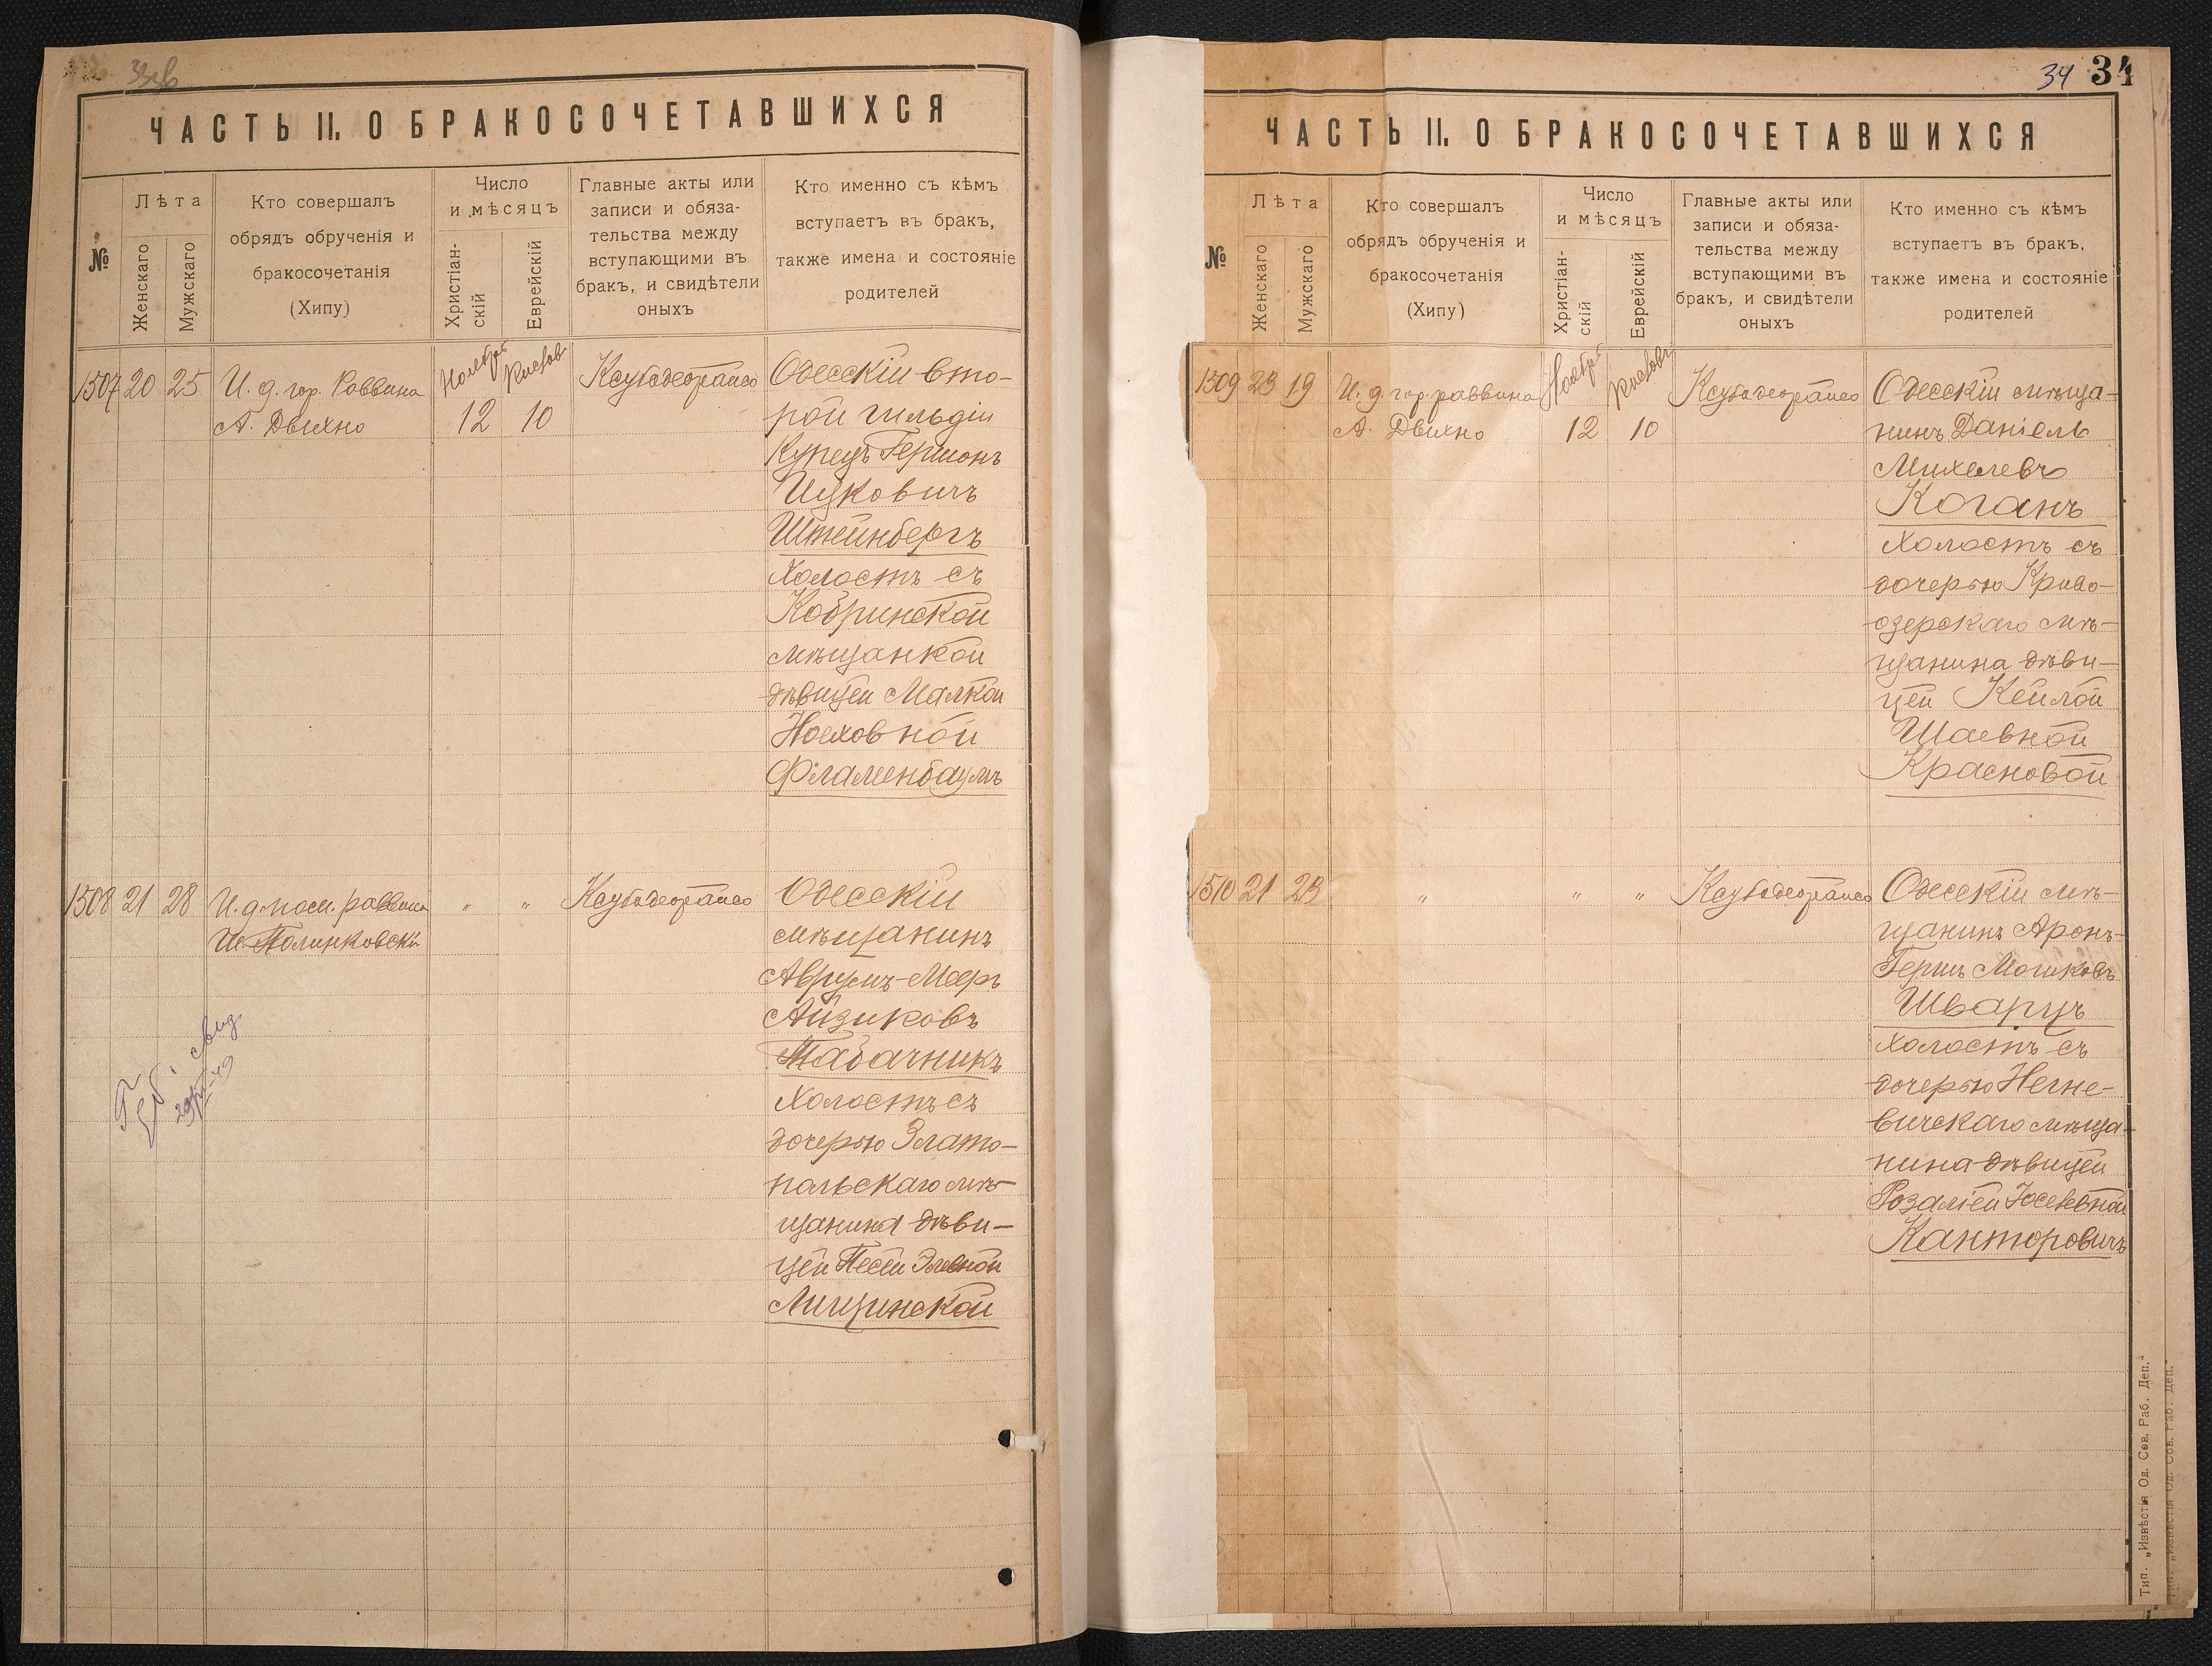 ЧАСТЬ II. О БРАКОСОЧЕТАВШИХСЯ
№
Лѣта
Женскаго
Мужскаго
Кто совершалъ
обрядъ обрученія и
бракосочетанія
(Хипу)
Число
и мѣсяцъ
Христіан-
скій
Еврейскій
Главные акты или
записи и обяза-
тельства между
вступающими въ
бракъ, и свидѣтели
оныхъ
Кто именно съ кѣмъ
вступаетъ въ бракъ,
также имена и состояніе
родителей
1507 20 25
И. д. гор. Раввина
А. Двихно
Ноябрь
12
Кислов
10
Одесскій вто-
рой гильдіи
Купецъ Гершонъ
Ицковичъ
Штейнбергъ
Холостъ съ
Кобринской
мѣщанкой
дѣвицей Малкой
Ноеховной
Фламенбаумъ
1508 21 28
И. д. пом. раввина
Ш. Полинковскій
" "
Одесскій
мѣщанинъ
Аврумъ-Мееръ
Айзиковъ
Табачникъ
Холостъ съ
дочерью Злато-
польскаго мѣ-
щанина дѣви-
цей Песей Элевной
Лищинской
34 34
ЧАСТЬ II. О БРАКОСОЧЕТАВШИХСЯ
№
Лѣта
Женскаго
Мужскаго
Кто совершалъ
обрядъ обрученія и
бракосочетанія
(Хипу)
Число
и мѣсяцъ
Христіан-
скій
Еврейскій
Главные акты или
записи и обяза-
тельства между
вступающими въ
бракъ, и свидѣтели
оныхъ
Кто именно съ кѣмъ
вступаетъ въ бракъ,
также имена и состояніе
родителей
1509 23 19
И. д. гор. раввина
А. Двихно
Ноябрь
12
Кисловъ
10
Одесскій мѣща-
нинъ Даніель
Михелевъ
Коганъ
Холостъ съ
дочерью Криво-
озерскаго мѣ-
щанина дѣви-
цей Кейлой
Шаевной
Красновой
1510 21 23
" " "
Одесскій мѣ-
щанинъ Аронъ-
Гершъ Мошковъ
Шварцъ
Холостъ съ
дочерью Негне-
вичскаго мѣща-
нина дѣвицей
Розаліей Юселевной
Канторовичъ
Тип. „Извѣстія Од. Сов. Раб. Деп."